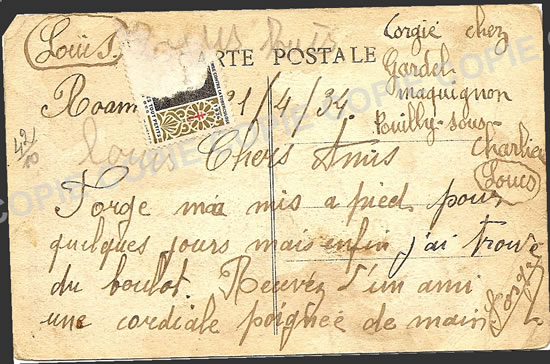 Louis
CARTE POSTALE
Corgié chez
Gardel
maquignon
Pouilly-sous-
Charlieu
Louis
21/4/34
Louis
Chers Amis
Forge ma mis a pied pour
quelques jours mais enfin j'ai trouvé
du boulot. Recevez d'un ami
une cordiale poignée de main
COPIE COPIE COPIE COPIE